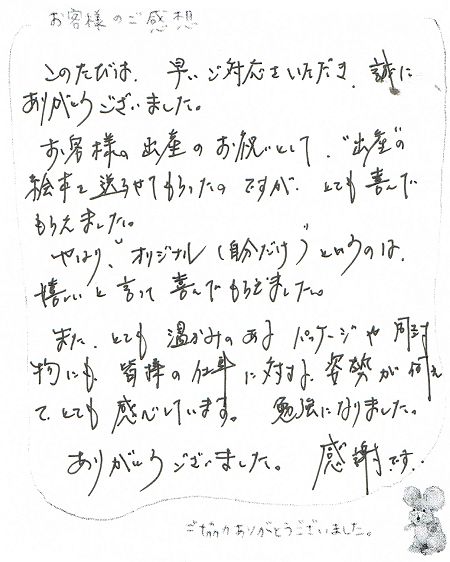 お客様のご感想
このたびは、早いご対応をいただき、誠に
ありがとうございました。
お客様の出産のお祝いとして、"出産"の
絵本を送らせてもらったのですが、とても喜んで
もらえました。
やはり、"オリジナル(自分だけ)"というのは、
嬉しいと言って喜んでもらえました。
また、とても温かみのあるパッケージや同封
物にも、皆様の仕事に対する姿勢が伺え
て、とても感心しています。 勉強になりました。
ありがとうございました。 感謝です。
ご協力ありがとうございました。